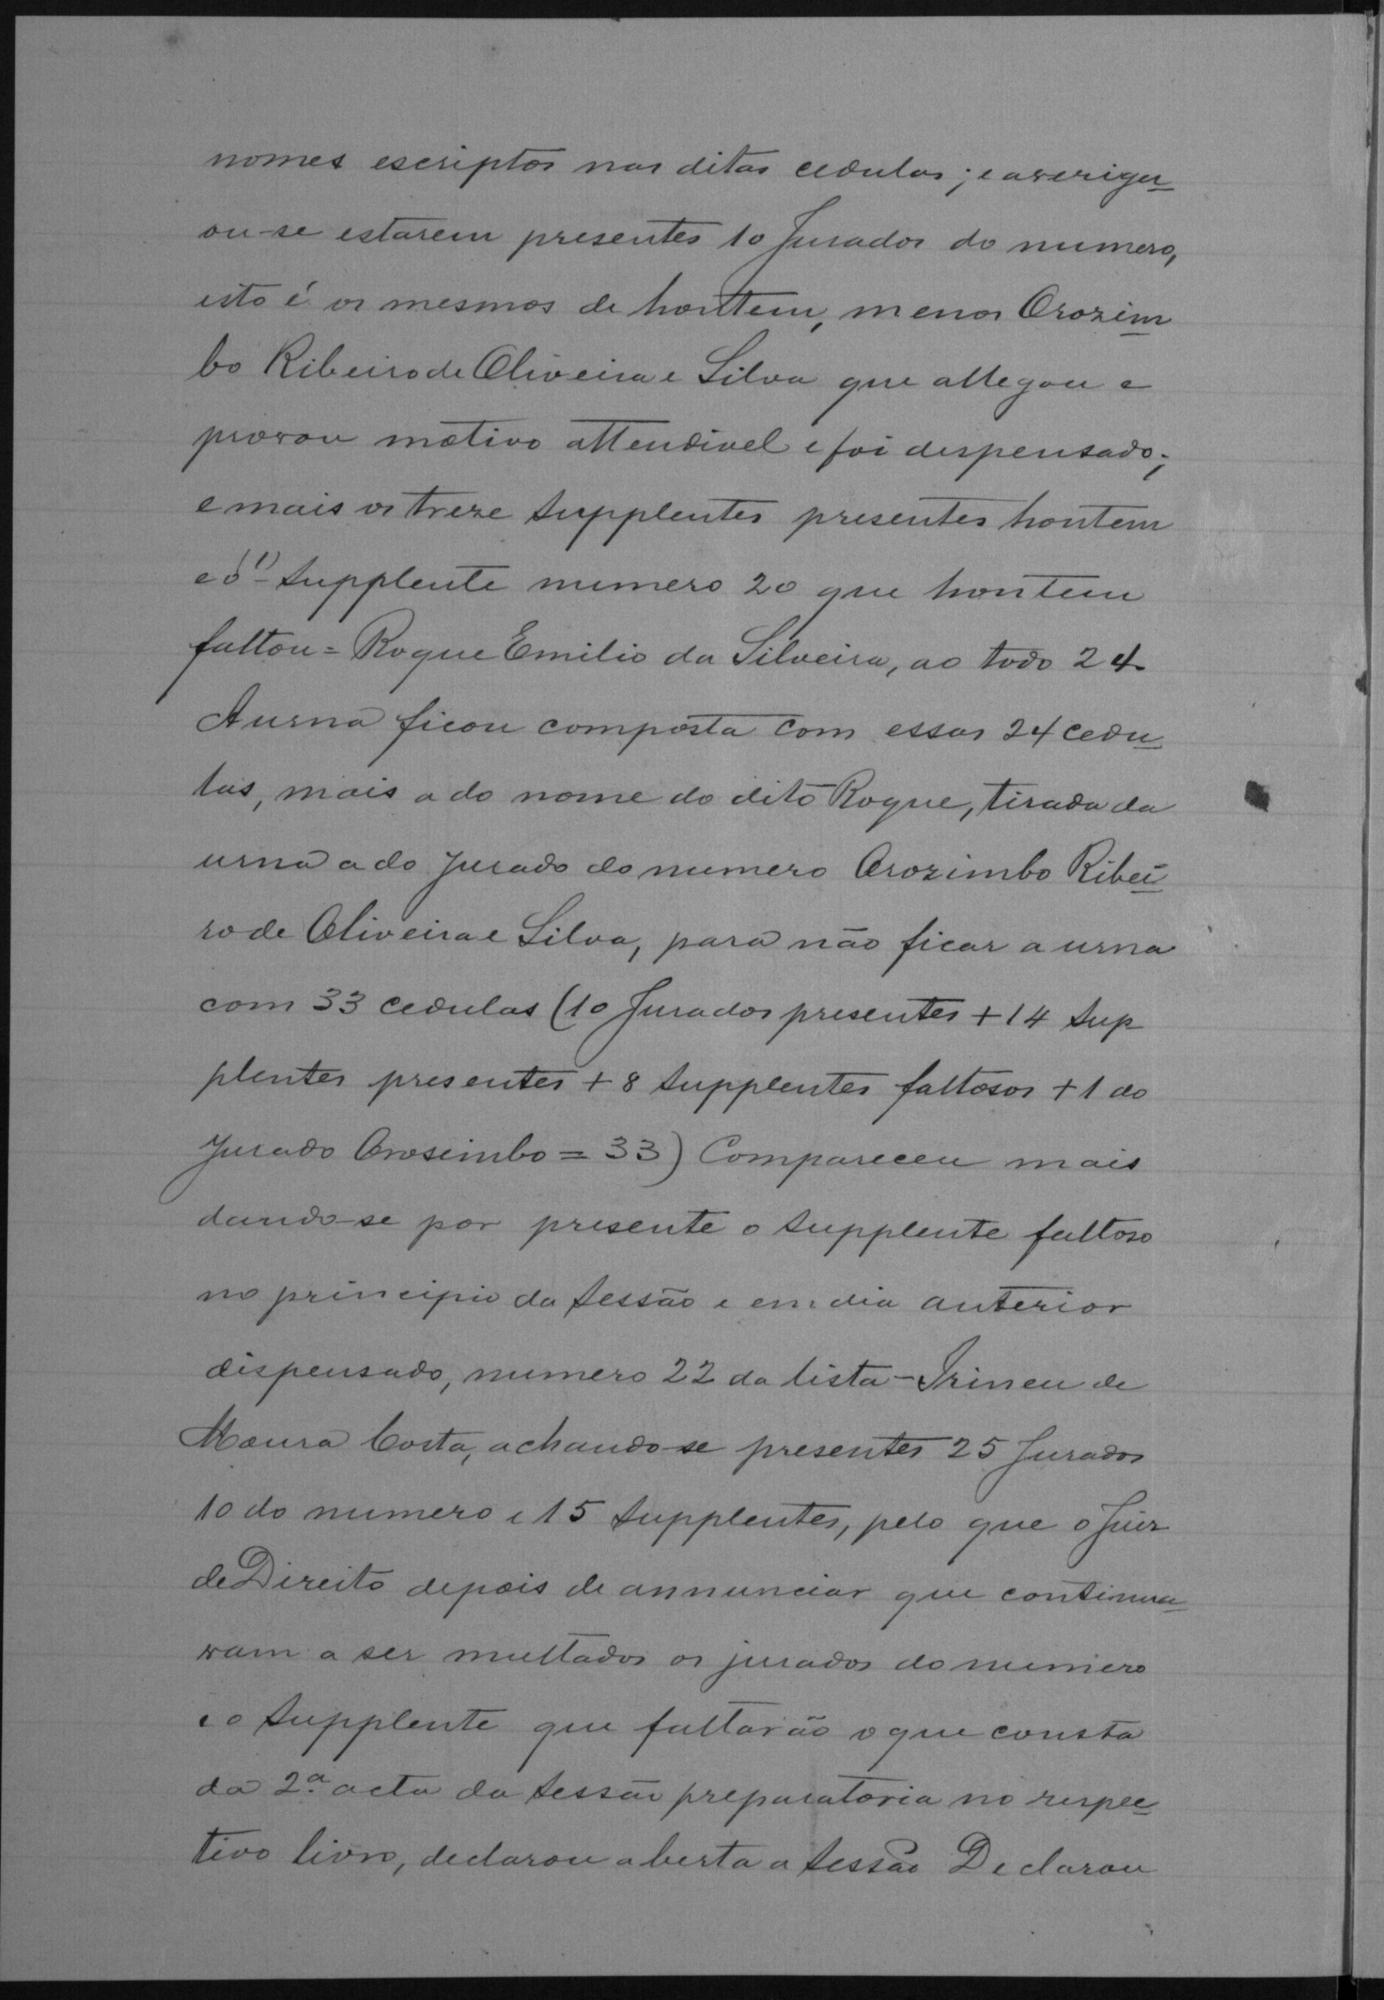 nomes escriptos nas ditas cedulas; e averigu
ou-se estarem presentes 10 Jurados do numero,
isto é os mesmos de hontem, menos Orozim
bo Ribeiro de Oliveira e Silva que allegou e
provou motivo attendivel e foi dispensado;
e mais os treze supplentes presentes hontem
e o supplente numero 20 que hontem
faltou = Roque Emilio da Silveira, ao todo 24.
A urna ficou composta com essas 24 cedu
las, mais a do nome do dito Roque, tirada da
urna a do Jurado do numero Orozimbo Ribei
ro de Oliveira e Silva, para não ficar a urna
com 33 cedulas (10 Jurados presentes + 14 sup
plentes presentes + 8 supplentes faltosos + 1 do
Jurado Orosimbo = 33) Compareceu mais
dando-se por presente o supplente faltoso
no principio da sessão e em dia anterior
dispensado, numero 22 da lista - Irineu de
Moura Costa, achando-se presentes 25 Jurados
10 do numero e 15 supplentes, pelo que o Juiz
de Direito depois de annunciar que continua
vam a ser multados os jurados do numero
e o supplente que faltarão o que consta
da 2ª acta da sessão preparatoria no respec
tivo livro, declarou aberta a sessão Declarou